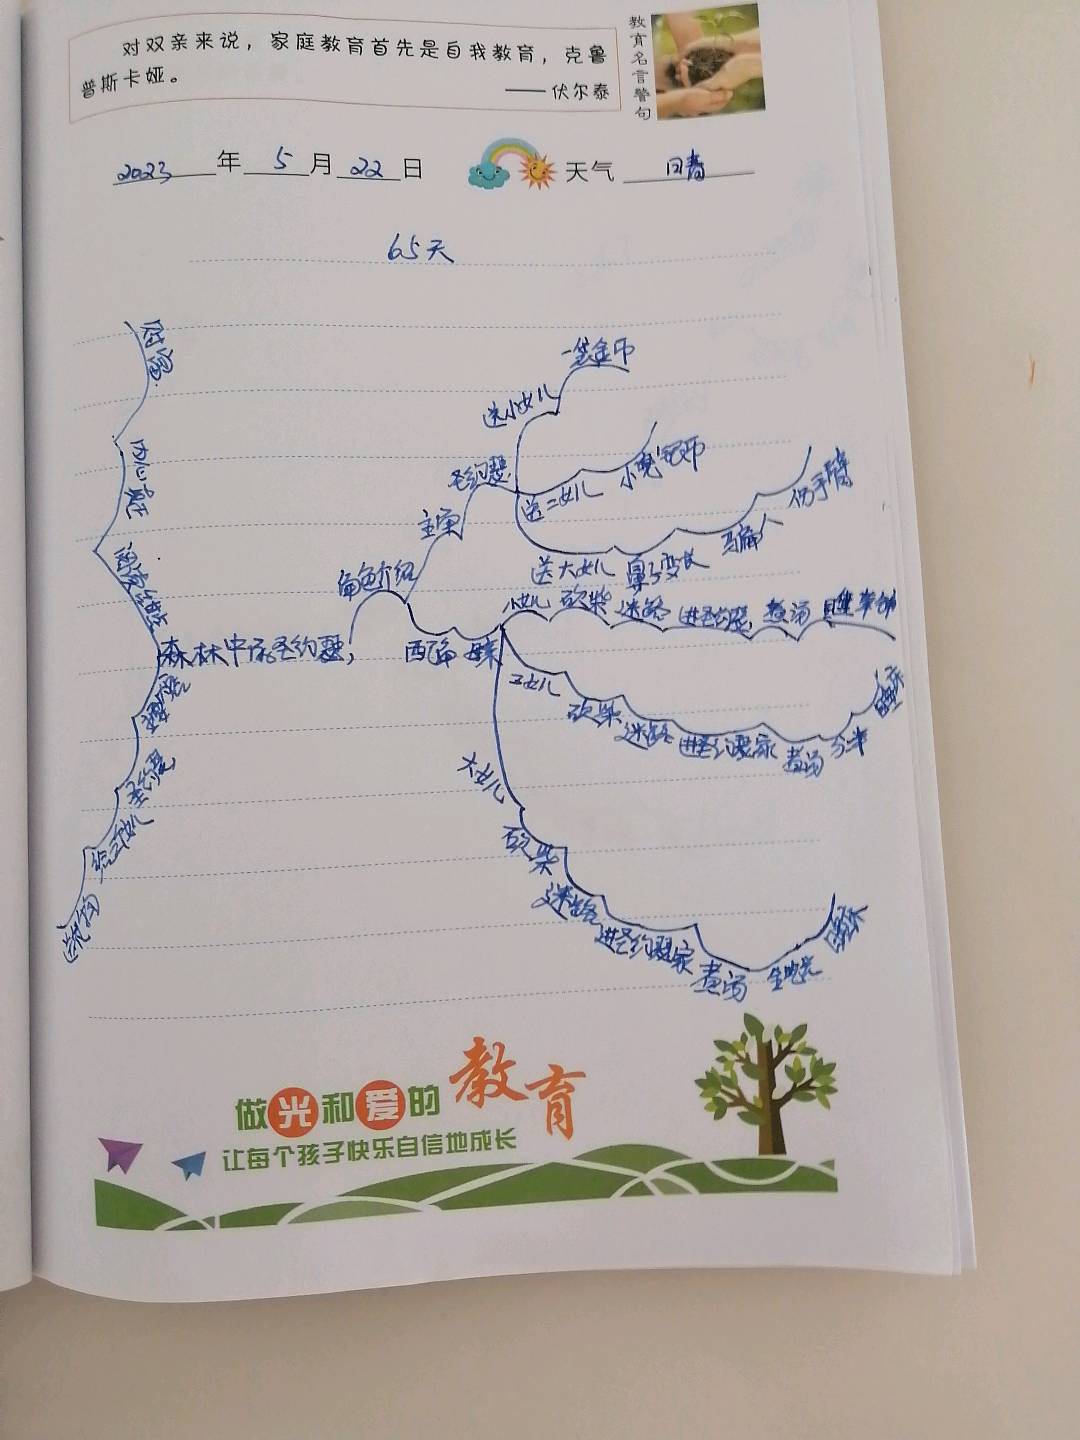 对双亲来说，家庭教育首先是自我教育，克鲁
普斯卡娅。
——伏尔泰
教育名言警句
2023年5月22日 天气 晴
65天
一袋金币
送小女儿
圣约瑟
送二女儿 小
主角
送大女儿 鼻子变长
角色介绍
森林中的圣约瑟
配角 母亲
小女儿 砍柴 迷路 进圣约瑟 煮汤
二女儿 砍柴 迷路 进圣约瑟家 煮汤 分半 睡床
大女儿 砍柴 迷路 进圣约瑟家 煮汤 全吃光 睡床
内心
圣约瑟
给三女儿
送礼物
做光和爱的教育
让每个孩子快乐自信地成长